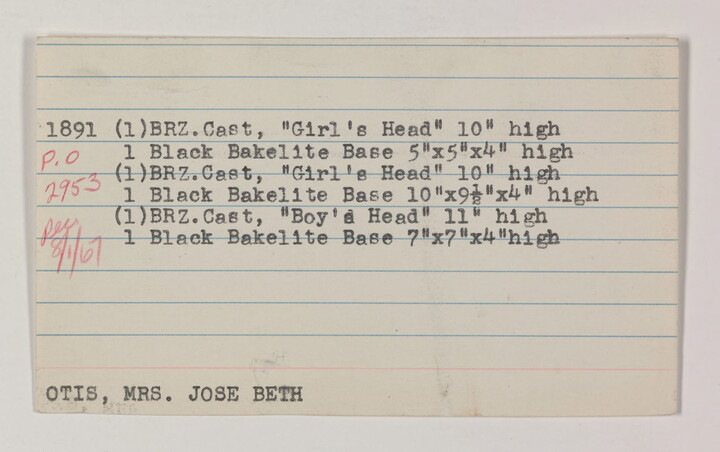 1891 (1)BRZ.Cast, "Girl's Head" 10" high
P.O 1 Black Bakelite Base 5"x5"x4" high
2953 (1)BRZ.Cast, "Girl's Head" 10" high
1 Black Bakelite Base 10"x9½"x4" high
(1)BRZ.Cast, "Boy's Head" 11" high
1 Black Bakelite Base 7"x7"x4"high
8/1/67
OTIS, MRS. JOSE BETH